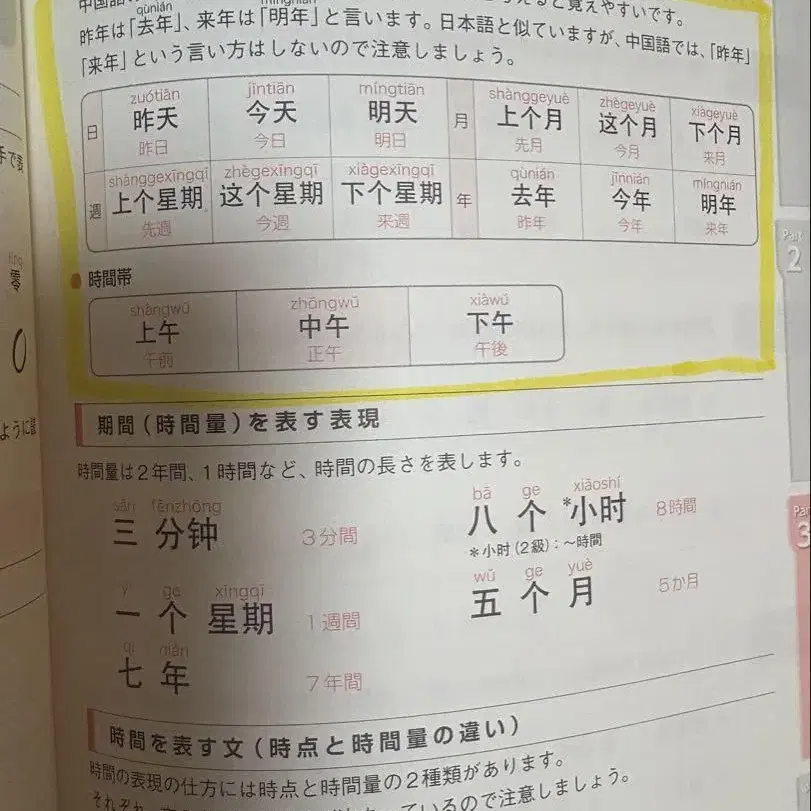 と覚えやすいです。
qùnián
昨年は「去年」、来年は「明年」と言います。日本語と似ていますが、中国語では、「昨年」
「来年」という言い方はしないので注意しましょう。
zuótiān jīntiān míngtiān shànggeyuè zhègeyuè xiàgeyuè
日 昨天 今天 明天 月 上个月 这个月 下个月
昨日 今日 明日 先月 今月 来月
shànggexīngqī zhègexīngqī xiàgexīngqī qùnián jīnnián míngnián
週 上个星期 这个星期 下个星期 年 去年 今年 明年
先週 今週 来週 昨年 今年 来年
時間帯
shàngwǔ zhōngwǔ xiàwǔ
上午 中午 下午
午前 正午 午後
期間(時間量)を表す表現
時間量は2年間、1時間など、時間の長さを表します。
sān fēnzhōng
三 分钟 3分間
bā ge xiǎoshí
八 个 *小时 8時間
*小时(2級):~時間
yí ge xīngqī
一 个 星期 1週間
wǔ ge yuè
五 个 月 5か月
qī nián
七 年 7年間
時間を表す文(時点と時間量の違い)
時間の表現の仕方には時点と時間量の2種類があります。
それぞれ
ているので注意しましょう。
líng
零
ように
Part
2
Par
3